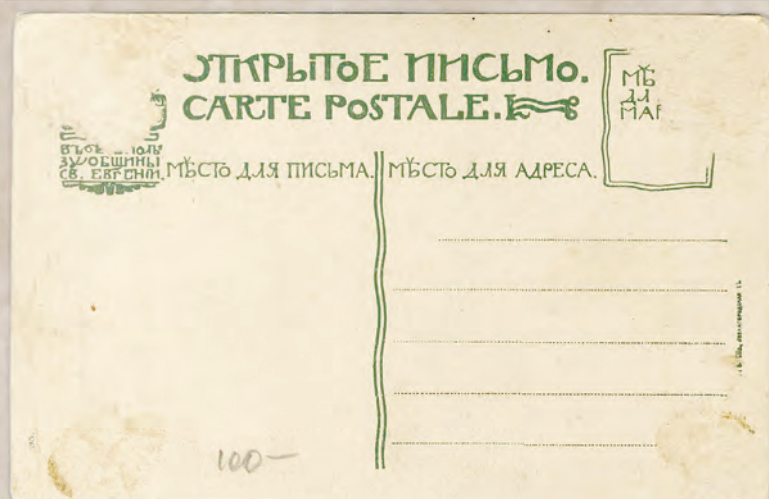 ОТКРЫТОЕ ПИСЬМО.
CARTE POSTALE.
МѢ
ДЛ
МАР
ЗУ ОБЩИНЫ
СВ. ЕВГЕНІИ.
МѢСТО ДЛЯ ПИСЬМА.
МѢСТО ДЛЯ АДРЕСА.
100-